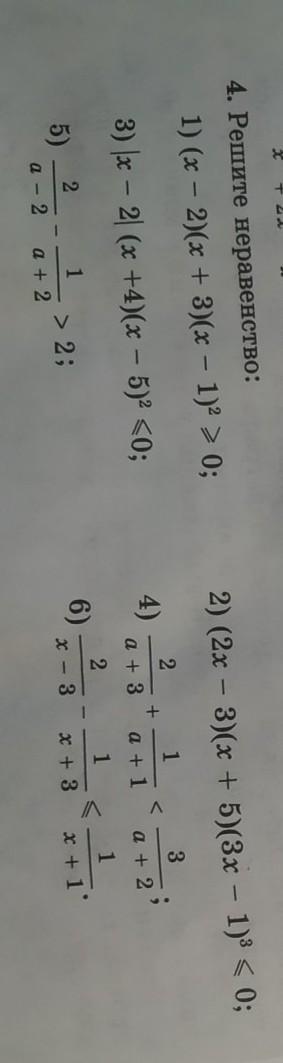 4. Решите неравенство:
1) (x − 2)(x + 3)(x − 1)² ⩾ 0;
2) (2x − 3)(x + 5)(3x − 1)³ ⩽ 0;
3) |x − 2| (x +4)(x − 5)² ⩽0;
4) 2/(a + 3) + 1/(a + 1) < 3/(a + 2);
5) 2/(a − 2) − 1/(a + 2) > 2;
6) 2/(x − 3) − 1/(x + 3) ⩽ 1/(x + 1).